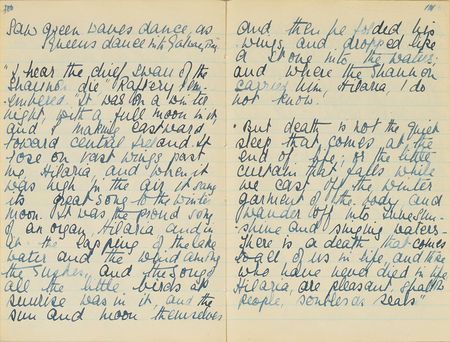 Saw green waves dance, as
Queens dance into Galway Bay.
"I hear the chief swan of the
Shannon die" Raftery rem-
embered. It was on a winter
night, with a full moon in it
and I making eastward
toward central Ireland. It
rose on vast wings past
me, Hilaria, and when it
was high in the air it sung
its great song to the winter
moon. It was the proud song
of an organ, Hilaria, and in
it the lapping of the lake
water and the wind among
the rushes, and the songs of
all the little birds at
sunrise was in it, and the
sun and moon themselves
and then he folded his
wings and dropped like
a stone into the water;
and where the Shannon
carried him, Hilaria, I do
not know.
"But death is not the quiet
sleep that comes at the
end of life; or the little
curtain that falls while
we cast off the winter
garment of the body and
wander off into sun-
shine and singing waters -
There is a death that comes
to all of us in life, and those
who have never died in life,
Hilaria, are pleasant, small
people, soulless as seals"